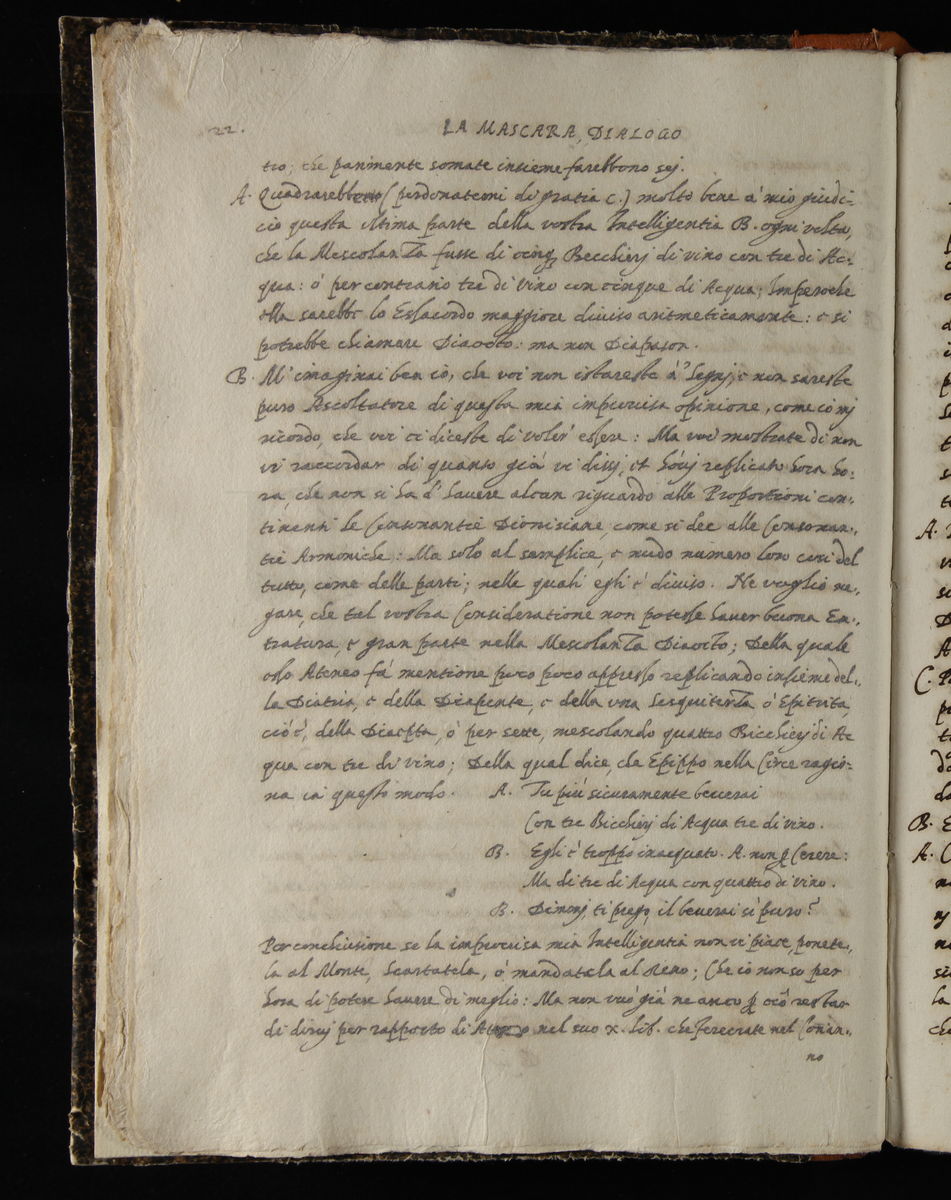 22.
LA MASCARA, DIALOGO
tro; che parimente somate insieme farebbono sej.
A. Quadrarebbe (perdonatemi di gratia C.) molto bene à mio giudi-
cio questa ultima parte della vostra Intelligentia B. ogni volta,
che la Mescolanza fusse di cinq; Becchierj di vino con tre di Ac-
qua: ò per contrario tre di vino con cinque di Acqua; Imperoche
ella sarebbe lo Essacordo maggiore diviso aritmeticamente: e si
potrebbe chiamare Diaocto: ma non Diapason.
B. M'imaginai ben iò, che voi non istareste à segnj, e non sareste
puro Ascoltatore di questa mia improvisa opinione, come io mj
ricordo, che voi ci diceste di voler' essere: Ma voi mostrate di non
vi raccordar di quanto già vi dissj, et hòvvj replicato hora ho-
ra, che non si hà d'havere alcun riguardo alle Proportioni con-
tinenti le Consonantie Dionisiane, come si dee alle Consonan-
tie Armoniche: Ma solo al semplice, e nudo numero loro così del
tutto, come delle parti; nelle quali egli è diviso. Ne voglio ne-
gare, che tal vostra Consideratione non potesse haver buona En-
tratura, e gran parte nella Mescolanza Diaocto; Della quale
solo Ateneo fà mentione poco poco appresso replicando insieme del-
la Diatria, e della Diapente, e della vera Sesquiterza ò Epitrita,
cio è, della Diaepta, ò per sette, mescolando quattro Bicchierj di Ac
qua con tre di vino; Della qual dice, che Epippo nella Circe ragio-
na in questo modo. A. Tu più sicuramente beverai
Con tre Bicchierj di Acqua tre di vino.
B. Egli è troppo inacquato. A. non p Cerere:
Ma di tre di Acqua con quattro di vino.
B. Dimonj, ti prego, il beverai si puro?
Per conclusione se la improvisa mia Intelligentia non vi piace, ponete-
la al Monte, Scartatela, ò mandatela al Reno; Che iò non so per
hora di potere havere di meglio: Ma non vuò già ne anco p ciò restar
di dirvj per rapporto di nel suo X. lib. che Ferecrate nel Corian-
no